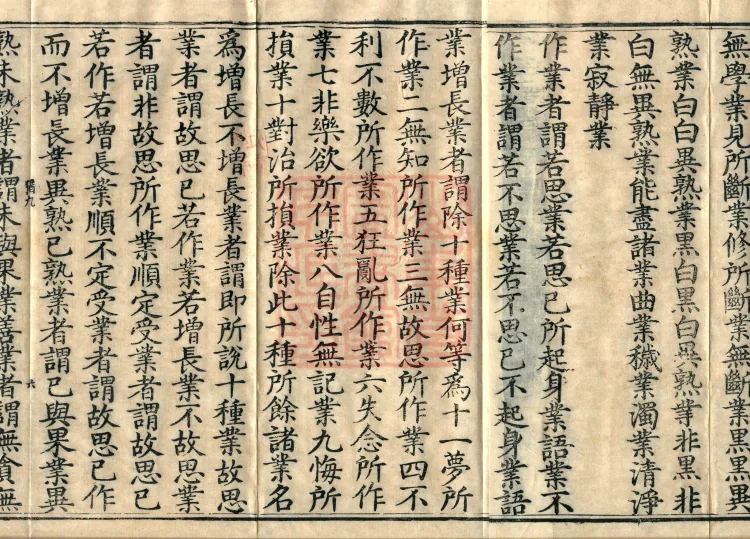 無學業見所斷業修所斷業無斷業黑黑異
熟業白白異熟業黑白黑白異熟業非黑非
白無異熟業能盡諸業曲業穢業濁業清淨
業寂靜業
作業者謂若思業若思已所起身業語業不
作業者謂若不思業若不思已不起身業語
業增長業者謂除十種業何等爲十一夢所
作業二無知所作業三無故思所作業四不
利不數所作業五狂亂所作業六失念所作
業七非樂欲所作業八自性無記業九悔所
損業十對治所損業除此十種所餘諸業名
爲增長不增長業者謂即所說十種業故思
業者謂故思已若作業若增長業不故思業
者謂非故思所作業順定受業者謂故思已
若作若增長業順不定受業者謂故思已作
而不增長業異熟已熟業者謂已與果業異
九 六
熟未熟業者謂未與果業善業者謂無貪無